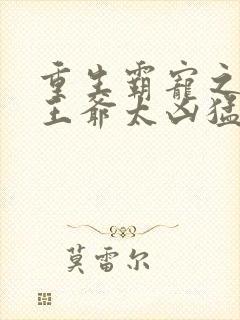 重生霸宠之
王爷太凶猛
莫雷尔